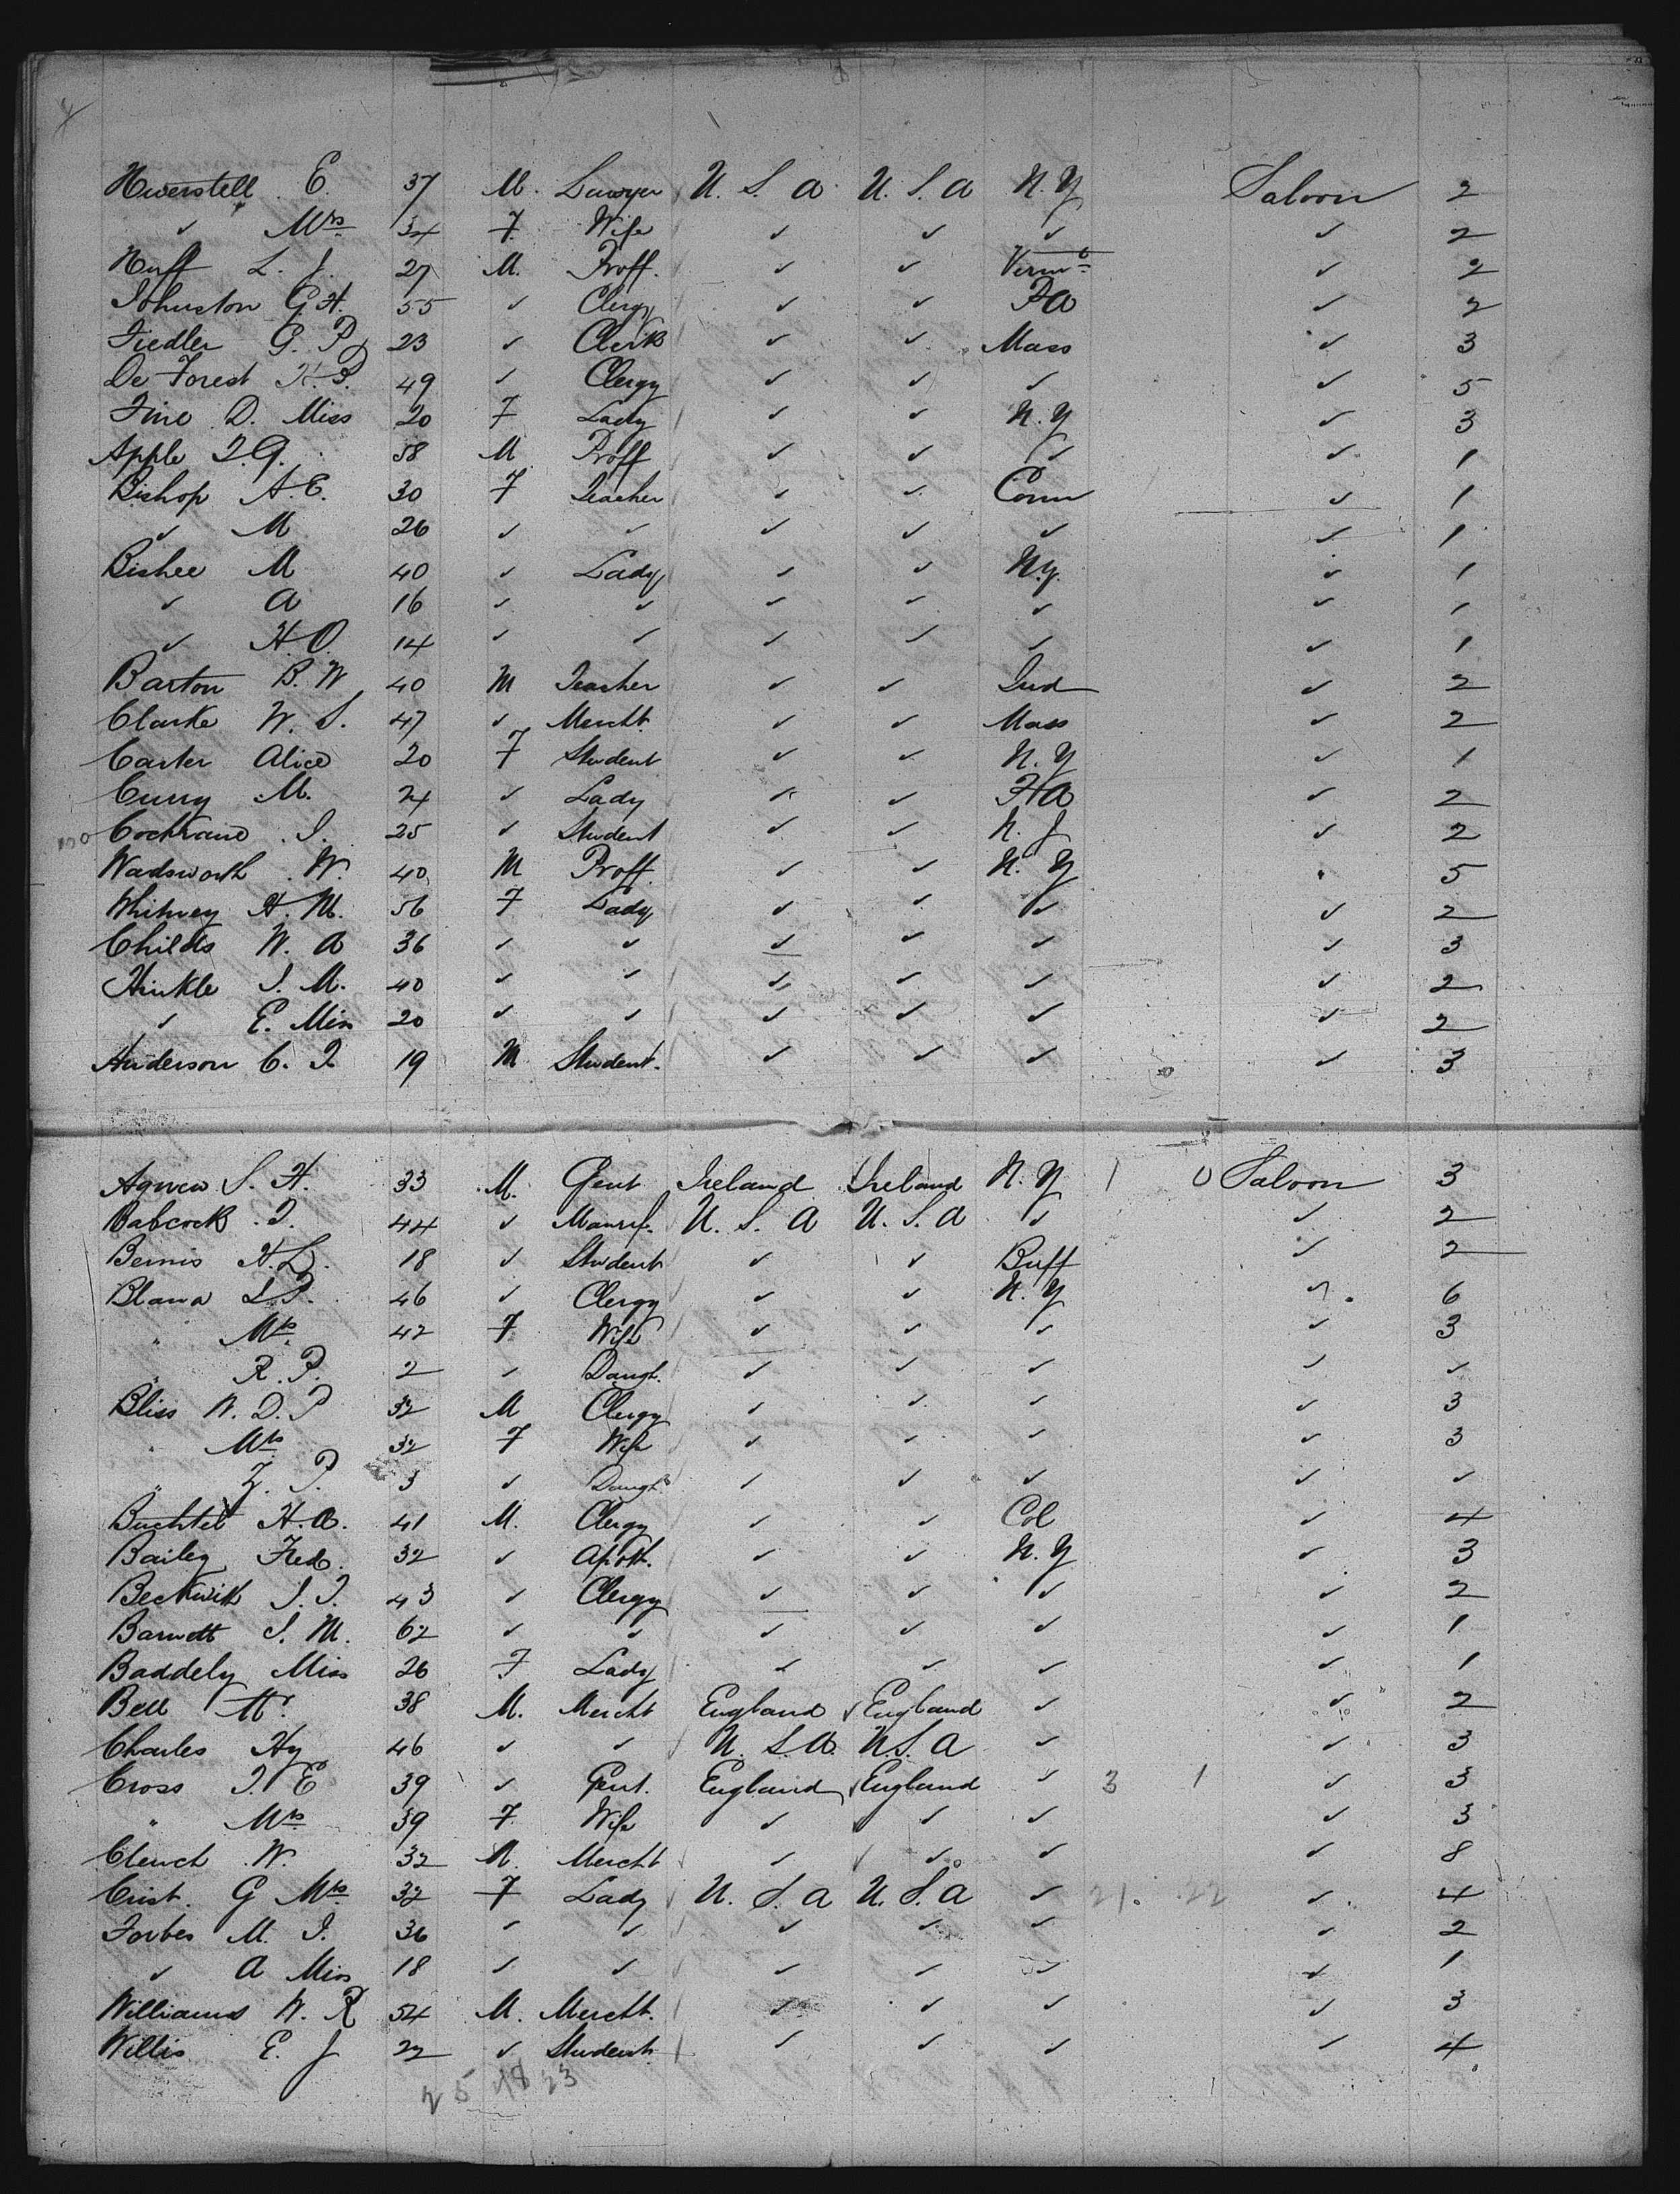 Hwerstell E. 37 M. Lawyer U. S. A. U. S. A N. Y Saloon 2
✓ Mrs 34 F. Wife ✓ ✓ ✓ ✓ 2
Huff L. J. 27 M. Proff. ✓ ✓ Vermt ✓ 2
Johnston G. H. 55 ✓ Clergy ✓ ✓ Pa ✓ 2
Fiedler G. P. 23 ✓ Clerk ✓ ✓ Mass ✓ 3
De Forest H. P. 49 ✓ Clergy ✓ ✓ ✓ ✓ 5
Fine D. Miss 20 F Lady ✓ ✓ N. Y ✓ 3
Apple T. G. 58 M. Proff ✓ ✓ ✓ ✓ 1
Bishop A. E. 30 F Teacher ✓ ✓ Conn ✓ 1
✓ M 26 ✓ ✓ ✓ ✓ ✓ ✓ 1
Bisbee M 40 ✓ Lady ✓ ✓ N.Y. ✓ 1
✓ A 16 ✓ ✓ ✓ ✓ ✓ ✓ 1
✓ H. O. 14 ✓ ✓ ✓ ✓ ✓ ✓ 1
Barton B. W 40 M Teacher ✓ ✓ Ind ✓ 2
Clarke W. S. 47 ✓ Mercht. ✓ ✓ Mass ✓ 2
Carter Alice 20 F Student ✓ ✓ N. Y ✓ 1
Curry M. 24 ✓ Lady ✓ ✓ Pa ✓ 2
Cochrane S. 25 ✓ Student ✓ ✓ N. J ✓ 2
Wadsworth W. 40 M Proff. ✓ ✓ N. Y " 5
Whitney H. M. 56 F Lady ✓ ✓ ✓ ✓ 2
Childs W. A 36 ✓ ✓ ✓ ✓ ✓ ✓ 3
Hinkle S. M. 40 ✓ ✓ ✓ ✓ ✓ ✓ 2
✓ E. Miss 20 ✓ ✓ ✓ ✓ ✓ ✓ 2
Anderson C. T 19 M Student. ✓ ✓ ✓ ✓ 3
Agnew S. H. 33 M. Gent Ireland Ireland N. Y 1 0 Saloon 3
Babcock T. 44 ✓ Manuf. U. S. A U. S. A ✓ ✓ 2
Bemis H. L. 18 ✓ Student ✓ ✓ Buff ✓ 2
46 ✓ Clergy ✓ ✓ N. Y ✓ 6
" Mrs 42 F Wife ✓ ✓ ✓ ✓ 3
" R. P. 2 ✓ Daugt. ✓ ✓ ✓ ✓ ✓
Bliss W. D. P 32 M Clergy ✓ ✓ ✓ ✓ 3
" Mrs 32 F Wife ✓ ✓ ✓ ✓ 3
" Z. P. 3 ✓ Daugt ✓ ✓ ✓ ✓ ✓
Buchtel H. A. 41 M. Clergy ✓ ✓ Col ✓ 4
Bailey Fred. 32 ✓ Apoth. ✓ ✓ N. Y ✓ 3
Beckwith S. T. 43 ✓ Clergy ✓ ✓ ✓ ✓ 2
Barnett S. M. 62 ✓ ✓ ✓ ✓ ✓ ✓ 1
Baddely Miss 26 F Lady ✓ ✓ ✓ ✓ 1
Bell 38 M. Mercht England England ✓ ✓ 2
Charles Hy 46 ✓ ✓ U. S. A. U. S. A ✓ ✓ 3
Cross T. E 39 ✓ Gent. England England ✓ 3 1 ✓ 3
" Mrs 39 F Wife ✓ ✓ ✓ ✓ 3
Clench W. 32 M. Mercht ✓ ✓ ✓ ✓ 8
Crist. G Mrs 32 F Lady U. S. A U. S. A ✓ 21. 22 ✓ 4
Forbes M. J. 36 ✓ ✓ ✓ ✓ ✓ ✓ 2
✓ A Miss 18 ✓ ✓ ✓ ✓ ✓ ✓ 1
Williams W. R 54 M. Mercht. ✓ ✓ ✓ ✓ 3
Willis E. J 22 ✓ Student ✓ ✓ ✓ ✓ 4
25 48 23